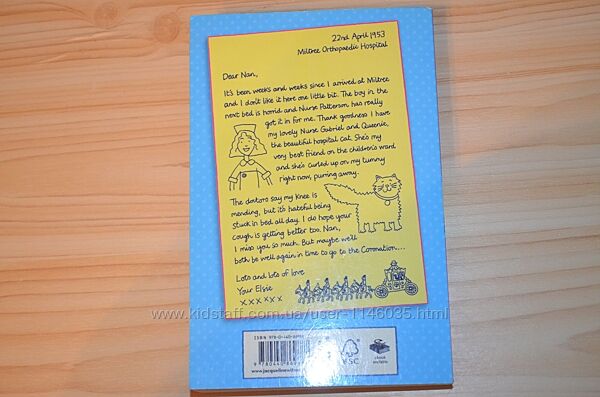 22nd April 1953
Miltree Orthopaedic Hospital
Dear Nan,
It's been weeks and weeks since I arrived at Miltree
and I don't like it here one little bit. The boy in the
next bed is horrid and Nurse Patterson has really
got it in for me. Thank goodness I have
my lovely Nurse Gabriel and Queenie,
the beautiful hospital cat. She's my
very best friend on the children's ward
and she's curled up on my tummy
right now, purring away.
The doctors say my knee is
mending, but it's hateful being
stuck in bed all day. I do hope your
cough is getting better too. Nan,
I miss you so much. But maybe we'll
both be well again in time to go to the Coronation...
Lots and lots of love
Your Elsie
xxxxxx
www.kidstaff.com.ua/user-1146035.html
ISBN 978-0-440-
9 780440
FSC